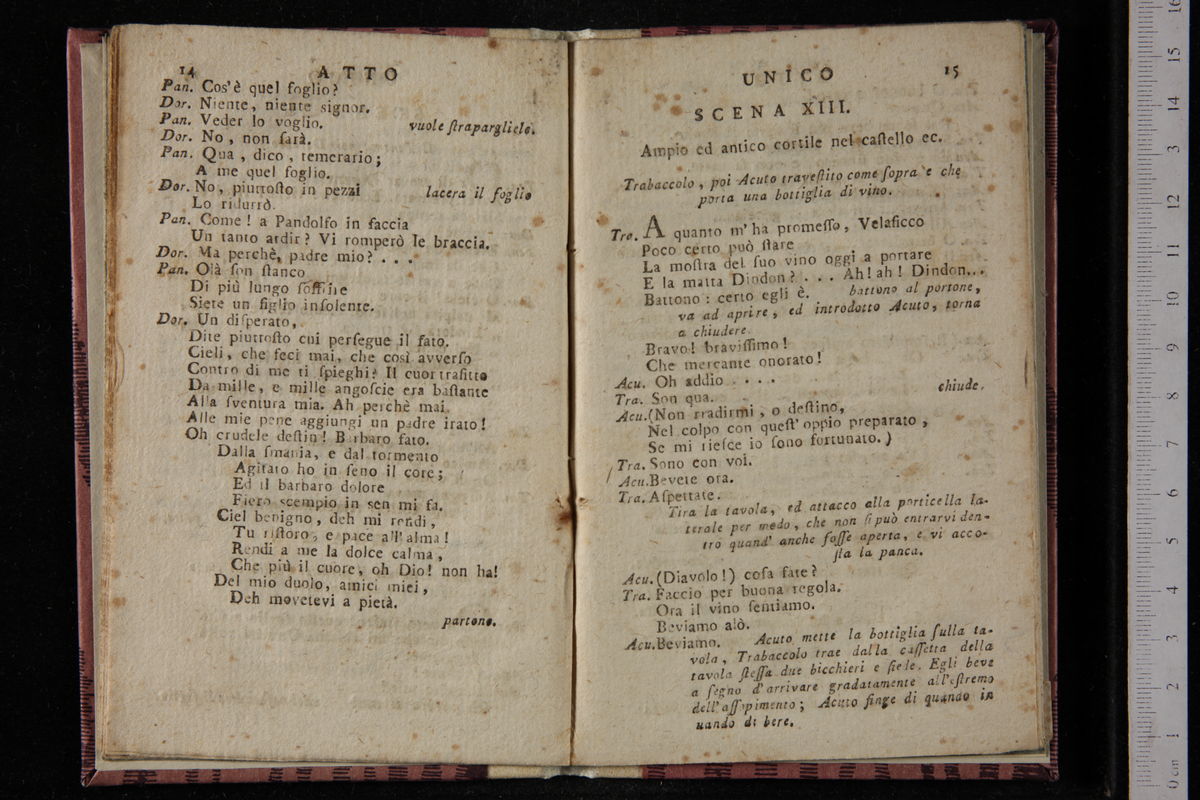 14 ATTO
Pan. Cos'è quel foglio?
Dor. Niente, niente signor.
Pan. Veder lo voglio. vuole ſtrapargliele.
Dor. No, non ſarà.
Pan. Qua, dico, temerario;
A me quel foglio.
Dor. No, piuttoſto in pezzi lacera il foglio
Lo ridurrò.
Pan. Come! a Pandolfo in faccia
Un tanto ardir? Vi romperò le braccia.
Dor. Ma perchè, padre mio? . . .
Pan. Olà ſon ſtanco
Di più lungo ſoffrire
Siete un figlio inſolente.
Dor. Un diſperato,
Dite piuttoſto cui perſegue il fato.
Cieli, che feci mai, che così avverſo
Contro di me ti ſpieghi? Il cuor trafitto
Da mille, e mille angoſcie era baſtante
Alla ſventura mia. Ah perchè mai
Alle mie pene aggiungi un padre irato!
Oh crudele deſtin! Barbaro fato.
Dalla ſmania, e dal tormento
Agitato ho in ſeno il core;
Ed il barbaro dolore
Fiero scempio in sen mi fa.
Ciel benigno, deh mi rendi,
Tu riſtoro, e pace all'alma!
Rendi a me la dolce calma,
Che più il cuore, oh Dio! non ha!
Del mio duolo, amici miei,
Deh movetevi a pietà.
partono.
UNICO 15
SCENA XIII.
Ampio ed antico cortile nel caſtello ec.
Trabaccolo, poi Acuto traveſtito come ſopra e che
porta una bottiglia di vino.
Tra. A quanto m'ha promeſſo, Velaſicco
Poco certo può ſtare
La moſtra del ſuo vino oggi a portare
E la matta Dindon? . . . Ah! ah! Dindon...
Battono: certo egli è. battono al portone,
va ad aprire, ed introdotto Acuto, torna
a chiudere.
Bravo! braviſſimo!
Che mercante onorato!
Acu. Oh addio . . . . chiude.
Tra. Son qua.
Acu. (Non tradirmi, o deſtino,
Nel colpo con queſt' oppio preparato,
Se mi rieſce io ſono fortunato.)
Tra. Sono con voi.
Acu. Bevete ora.
Tra. Aſpettate.
Tira la tavola, ed attacco alla porticella la-
terale per modo, che non ſi può entrarvi den-
tro quand' anche foſſe aperta, e vi acco-
ſta la panca.
Acu. (Diavolo!) coſa fate?
Tra. Faccio per buona regola.
Ora il vino ſentiamo.
Beviamo alò.
Acu. Beviamo. Acuto mette la bottiglia ſulla ta-
vola, Trabaccolo trae dalla caſſetta della
tavola ſteſſa due bicchieri e ſiede. Egli beve
a ſegno d'arrivare gradatamente all'eſtremo
dell'aſſopimento; Acuto finge di quando in
uando di bere.